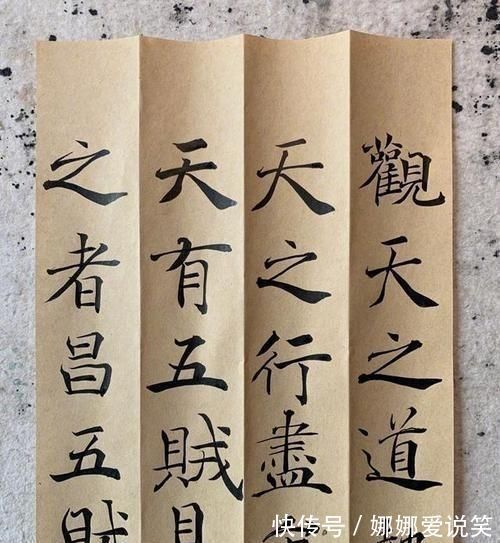 觀天之道
天之行盡
天有五賊見
之者昌五賊
快传号 / 娜娜爱说笑